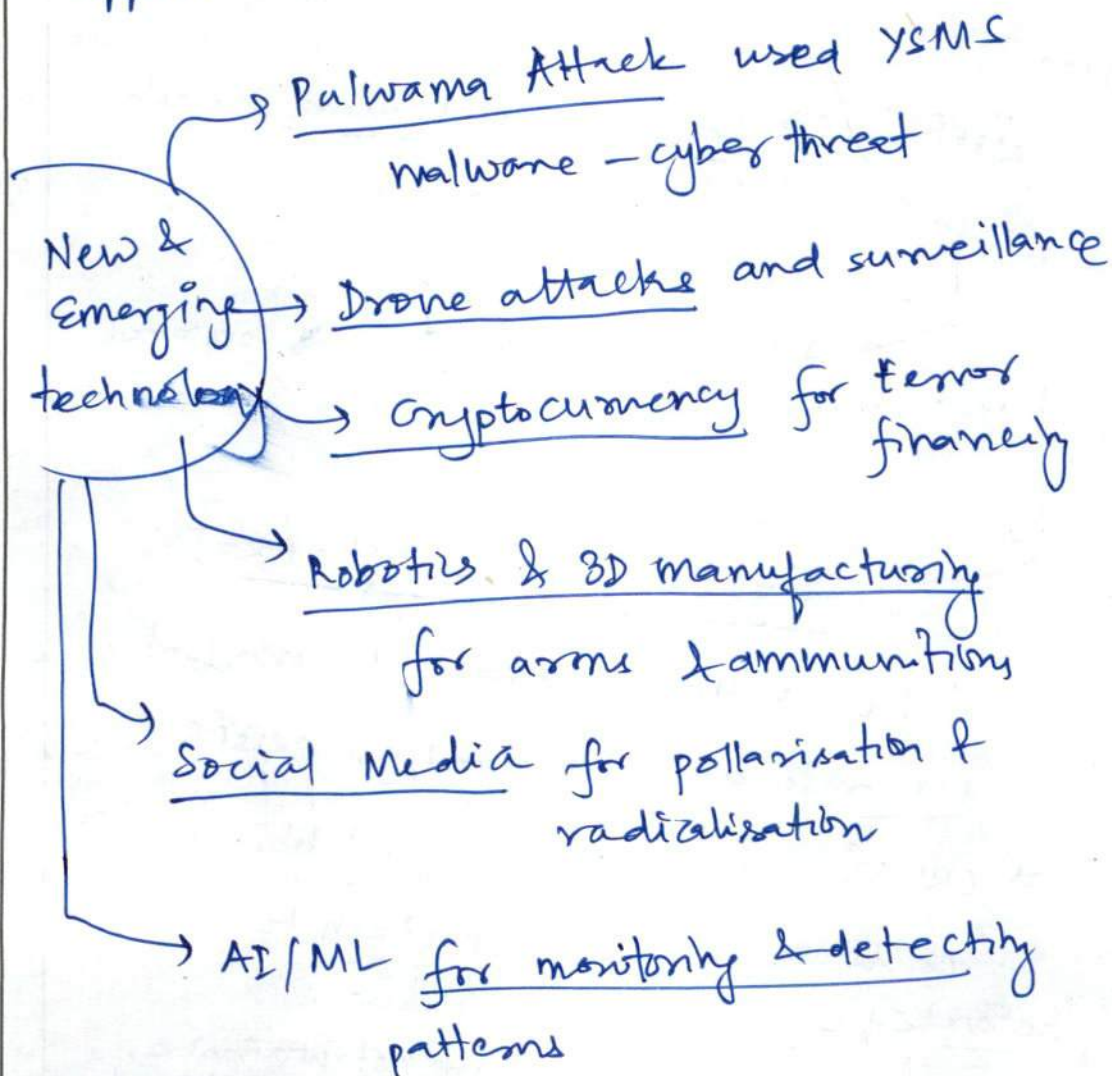 Pulwama Attack used YSMS
malware - cyber threat
New &
Emerging
technology
Drone attacks and surveillance
Cryptocurrency for terror
financing
Robotics & 3D manufacturing
for arms & ammunitions
Social Media for pollarisation &
radicalisation
AI/ML for monitoring & detecting
patterns